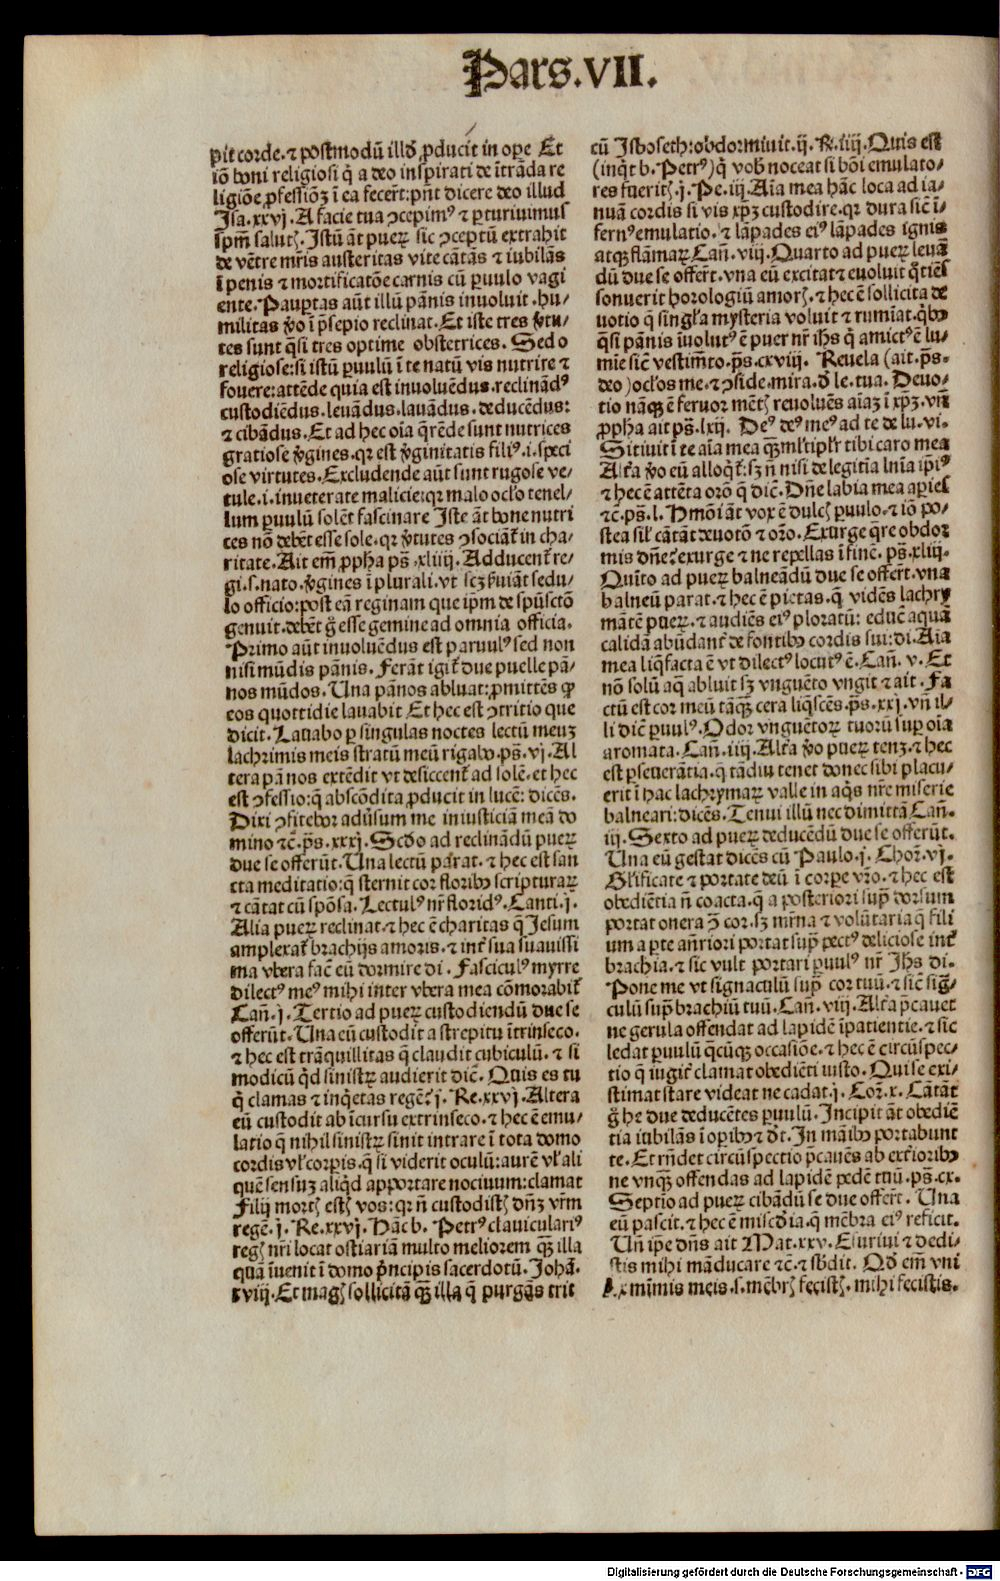 Pars.VII.
pit corde.⁊ postmodū illđ ꝓducit in oꝑe Et
iō boni religiosi q̄ a deo inspirati de ītrāda re
ligiōe ꝓfessiōꝫ ī ea fecer̄t:pn̄t dicere deo illud
Isa.xxvj.A facie tua ↄcepimꝰ ⁊ ꝑturiuimus
sp̄m salutꝭ.Istū āt pueꝝ sic ↄceptū extrahit
de vētre mr̄is austeritas vite cātās ⁊ iubilās
ī penis ⁊ mortificatōe carnis cū ꝑuulo vagi
ente.Pauꝑtas aūt illū pānis inuoluit.hu⸗
militas ꝟo ī p̄sepio reclinat.Et iste tres ꝟtu⸗
tes sunt q̄si tres optime obstetrices. Sed o
religiose:si istū ꝑuulū ī te natū vis nutrire ⁊
fouere:attēde quia est inuoluēdus.reclinādꝰ
custodiēdus.leuādus.lauādus.deducēdus:
⁊ cibādus.Et ad hec oīa q̄rēde sunt nutrices
gratiose ꝟgines.qr est ꝟginitatis filiꝰ.i.speci
ose virtutes.Excludende aūt sunt rugose ve⸗
tule.i.inueterate malicie:qr malo ocl̓o tenel⸗
lum ꝑuulū solēt fascinare Iste āt bone nutri
ces nō debēt esse sole.qr ꝟtutes ↄsociāt̄ in cha⸗
ritate.Ait em̄ ꝓpha ps̄ .xliiij.Adducent̄ re⸗
gi.s.nato.ꝟgines ī plurali.vt scꝫ ẜuiāt sedu⸗
lo officio:post eā reginam que ip̄m de spūsctō
genuit.debēt g̊ esse gemine ad omnia officia.
Primo aūt inuoluēdus est paruulꝰ sed non
nisi mūdis pānis. Ferāt igit̄ due puelle pā⸗
nos mūdos. Una pānos abluat:ꝓmittēs ꝙ
eos quottidie lauabit Et hec est ↄtritio que
dicit.Lauabo ꝑ singulas noctes lectū meuꝫ
lachrimis meis stratū meū rigabo.ps̄.vj.Al
tera pānos extēdit vt desiccent̄ ad solē.et hec
est ↄfessio:q̄ abscōdita ꝓducit in lucē: dicēs.
Dixi ↄfitebor aduersum me iniusticiā meā do
mino ⁊c̄.ps̄.xxxj.Scđo ad reclinādū pueꝝ
due se offerūt.Una lectū parat.⁊ hec est san
cta meditatio:q̄ sternit cor floribꝰ scripturaꝝ
⁊ cātat cū spōsa.Lectulꝰ nr̄ floridꝰ.Canti.j.
Alia pueꝝ reclinat.⁊ hec ē charitas q̄ Jesum
amplexat̄ brachijs amoris.⁊ int̄ sua suauissi
ma vbera fac̄ eū dormire di. Fasciculꝰ myrre
dilectꝰ meꝰ mihi inter vbera mea cōmorabit̄
Can̄.j.Tertio ad pueꝝ custodiendū due se
offerūt.Una eū custodit a strepitu ītrinseco.
⁊ hec est trāquillitas q̄ claudit cubiculū.⁊ si
modicū q̇d sinistꝝ audierit dic̄. Quis es tu
q̄ clamas ⁊ inq̇etas regē? j. Re.xxvj.Altera
eū custodit ab īcursu extrinseco.⁊ hec ē emu⸗
latio q̄ nihil sinistꝝ sinit intrare ī tota domo
cordis vl̓ corꝑis.q̄ si viderit oculū:aurē vl̓ ali
quē sensuꝫ aliq̇d apportare nociuum:clamat
Filij mortꝭ estꝭ vos:qr n̄ custodistꝭ dn̄ꝫ vr̄m
regē.j.Re.xxvj.Hāc b. Petrꝰ clauiculariꝰ
regꝭ nr̄i locat ostiariā multo meliorem qꝫ̄ illa
quā īuenit ī domo p̄ncipis sacerdotū.Johā.
xviij.Et magꝭ sollicitā qꝫ̄ illa q̄ purgās trit
cū Isboseth:obdormiuit.ij.R.iiij.Quis est
(inq̇t b. Petrꝰ)q̇ vob̄ noceat si bōi emulato⸗
res fueritꝭ.j.Pe.iij.Aīa mea hāc loca ad ia⸗
nuā cordis si vis xp̄ꝫ custodire.qr dura sic̄ ī⸗
fernꝰ emulatio.⁊ lāpades eiꝰ lāpades ignis
atqꝫ flāmaꝝ Can̄.viij.Quarto ad pueꝝ leuā
dū due se offer̄t.vna eū excitat ⁊ euoluit q̊tiēs
sonuerit horologiū amorꝭ.⁊ hec ē sollicita de
uotio q̄ singl̓a mysteria voluit ⁊ rumīat.q̇bꝰ
q̄si pānis īuolutꝰ ē puer nr̄ ihs q̄ amictꝰ ē lu⸗
mīe sic̄ vestimēto.ps̄.cxviij. Reuela (ait.ps̄.
deo)ocl̓os me.⁊ ↄside.mira.đ le.tua. Deuo⸗
tio nāqꝫ ē feruor mētꝭ reuoluēs aīaꝫ ī xp̄ꝫ.vn̄
ꝓpha ait ps̄.lxij. Deꝰ deꝰ meꝰ ad te de lu.vi.
Sitiuit ī te aīa mea qꝫ̄ ml̓tipl̓r tibi caro mea
Alt̄a ꝟo eū alloq̇t̄:sꝫ n̄ nisi de legitīa ln̄ia ip̄iꝰ
⁊ hec ē attēta orō q̄ dic̄.Dn̄e labia mea aꝑies
⁊c̄.ps̄.l.Hmōi āt vox ē dulcꝭ ꝑuulo.⁊ iō po⸗
stea sil̓ cātāt deuotō ⁊ orō.Exurge q̄re obdor
mis dn̄e? exurge ⁊ ne repellas ī finē.ps̄.xliij.
Quīto ad pueꝝ balneādū due se offer̄t.vna
balneū parat.⁊ hec ē pietas.q̄ vidēs lachry
mātē pueꝝ.⁊ audiēs eiꝰ ploratū: educ̄ aquā
calidā abūdant̄ de fontibꝰ cordis sui:di.Aīa
mea liq̄facta ē vt dilectꝰ locutꝰ ē.Can̄.v.Et
nō solū aq̄ abluit sꝫ vnguēto vngit ⁊ ait.Fa
ctū est cor meū tāqꝫ̄ cera liq̄scēs.ps̄.xxj.vn̄ il⸗
li dic̄ ꝑuulꝰ.Odor vnguētoꝝ tuorū suꝑ oīa
aromata.Can̄.iiij.Alt̄a ꝟo pueꝝ tenꝫ.⁊ hec
est ꝑseuerātia.q̄ tādiu tenet donec sibi placu⸗
erit ī hac lachrymaꝝ valle in aq̇s nr̄e miserie
balneari:dicēs.Tenui illū nec dimittā Can̄.
iij.Sexto ad pueꝝ deducēdū due se offerūt.
Una eū gestat dicēs cū Paulo.j.Chor̄.vj.
Gl̓ificate ⁊ portate deū ī corꝑe vr̄o.⁊ hec est
obediētia n̄ coacta.q̄ a posteriori suꝑ dorsum
portat onera ꝯ̄ cor.sꝫ mr̄na ⁊ volūtaria q̄ fili
um a ꝑte an̄riori portat suꝑ pectꝰ deliciose int̄
brachia.⁊ sic vult portari ꝑuulꝰ nr̄ Jhs di.
Pone me vt signaculū suꝑ cor tuū.⁊ sic̄ sig̅⸗
culū suꝑ brachiū tuū.Can̄.viij.Alt̄a p̄cauet
ne gerula offendat ad lapidē īpatientie.⁊ sic
ledat ꝑuulū q̄cūqꝫ occasiōe.⁊ hec ē circūspec⸗
tio q̄ iugit̄ clamat obediēti iusto.Qui se exi⸗
stimat stare videat ne cadat.j.Cor̄.x.Cātāt
g̊ he due deducētes ꝑuulū.Incipit āt obediē
tia iubilās ī oꝑibꝰ ⁊ dt̄.In māibꝰ portabunt
te.Et rn̄det circūspectio p̄cauēs ab ext̄ioribꝰ
ne vnqꝫ̄ offendas ad lapidē pedē tuū.ps̄.cx.
Septīo ad pueꝝ cibādū se due offer̄t. Una
eū pascit.⁊ hec ē miscđia.q̄ mēbra eiꝰ reficit.
Un̄ ip̄e dn̄s ait Mat.xxv.Esuriui ⁊ dedi⸗
stis mihi māducare ⁊c̄.⁊ sbdit. Qđ em̄ vni
ex mīmis meis.s.mēbrꝭ fecistꝭ.mihi fecistis.
Digitalisierung gefördert durch die Deutsche Forschungsgemeinschaft - DFG